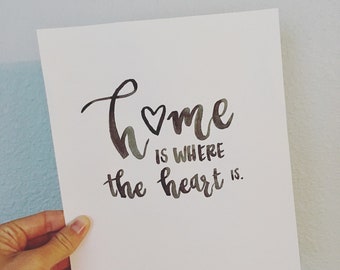 home
IS WHERE
the heart IS.